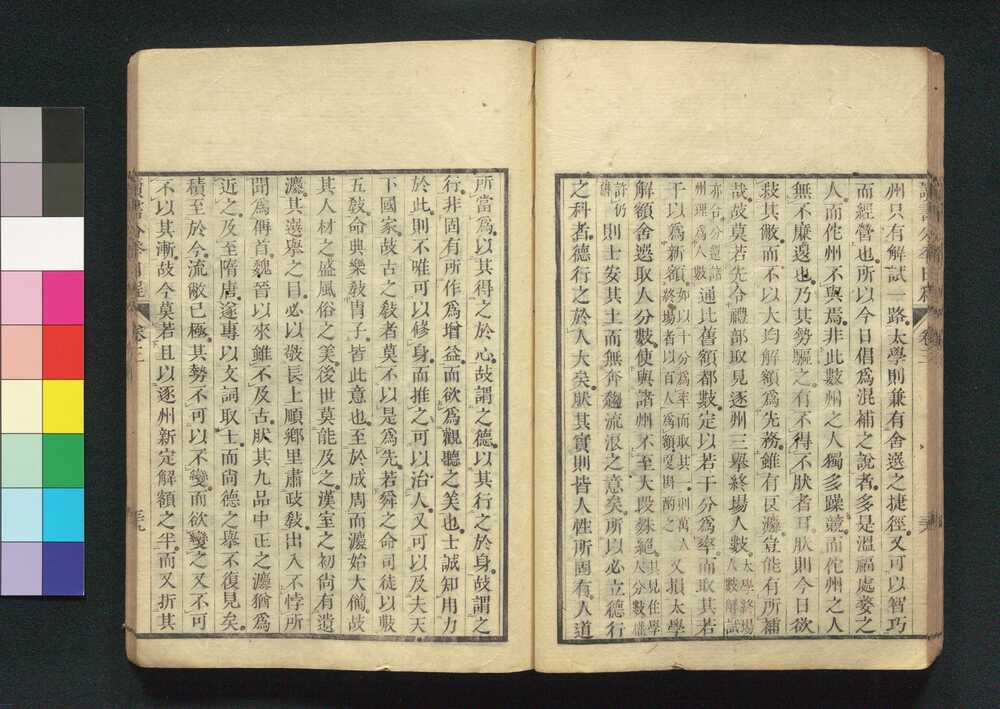 州只有解試一路太學則兼有舍選之捷徑又可以智巧
而經營也所以今日倡爲混補之說者多是溫福處婺之
人而佗州不與焉非此數州之人獨多躁競而佗州之人
無不廉退也乃其勢驅之有不得不肰者耳肰則今日欲
救其敝而不以大均解額爲先務雖有良灋豈能有所補
哉故莫若先令禮部取見逐州三舉終場人數太學終場人數解試
亦合分還諸州理爲人數通比舊額都數定以若干分爲率而取其若
干以爲新額如以十分爲率而取其一則萬人終場者以百人爲額更斟酌之又損太學
解額舍選取人分數使與諸州不至大段殊絕其見住學人分數權
許仍舊則士安其土而無奔趨流浪之意矣所以必立德行
之科者德行之於人大矣肰其實則皆人性所固有人道
所當爲以其得之於心故謂之德以其行之於身故謂之
行非固有所作爲增益而欲爲觀聽之美也士誠知用力
於此則不唯可以修身而推之可以治人又可以及夫天
下國家故古之敎者莫不以是爲先若舜之命司徒以敷
五敎命典樂敎冑子皆此意也至於成周而灋始大備故
其人材之盛風俗之美後世莫能及之漢室之初尚有遺
灋其選舉之目必以敬長上順鄉里肅政敎出入不悖所
聞爲稱首魏晉以來雖不及古肰其九品中正之灋猶爲
近之及至隋唐遂專以文詞取士而尙德之舉不復見矣
積至於今流敝已極其勢不可以不變而欲變之又不可
不以其漸故今莫若且以逐州新定解額之半而又折其
讀書分年日程 卷三